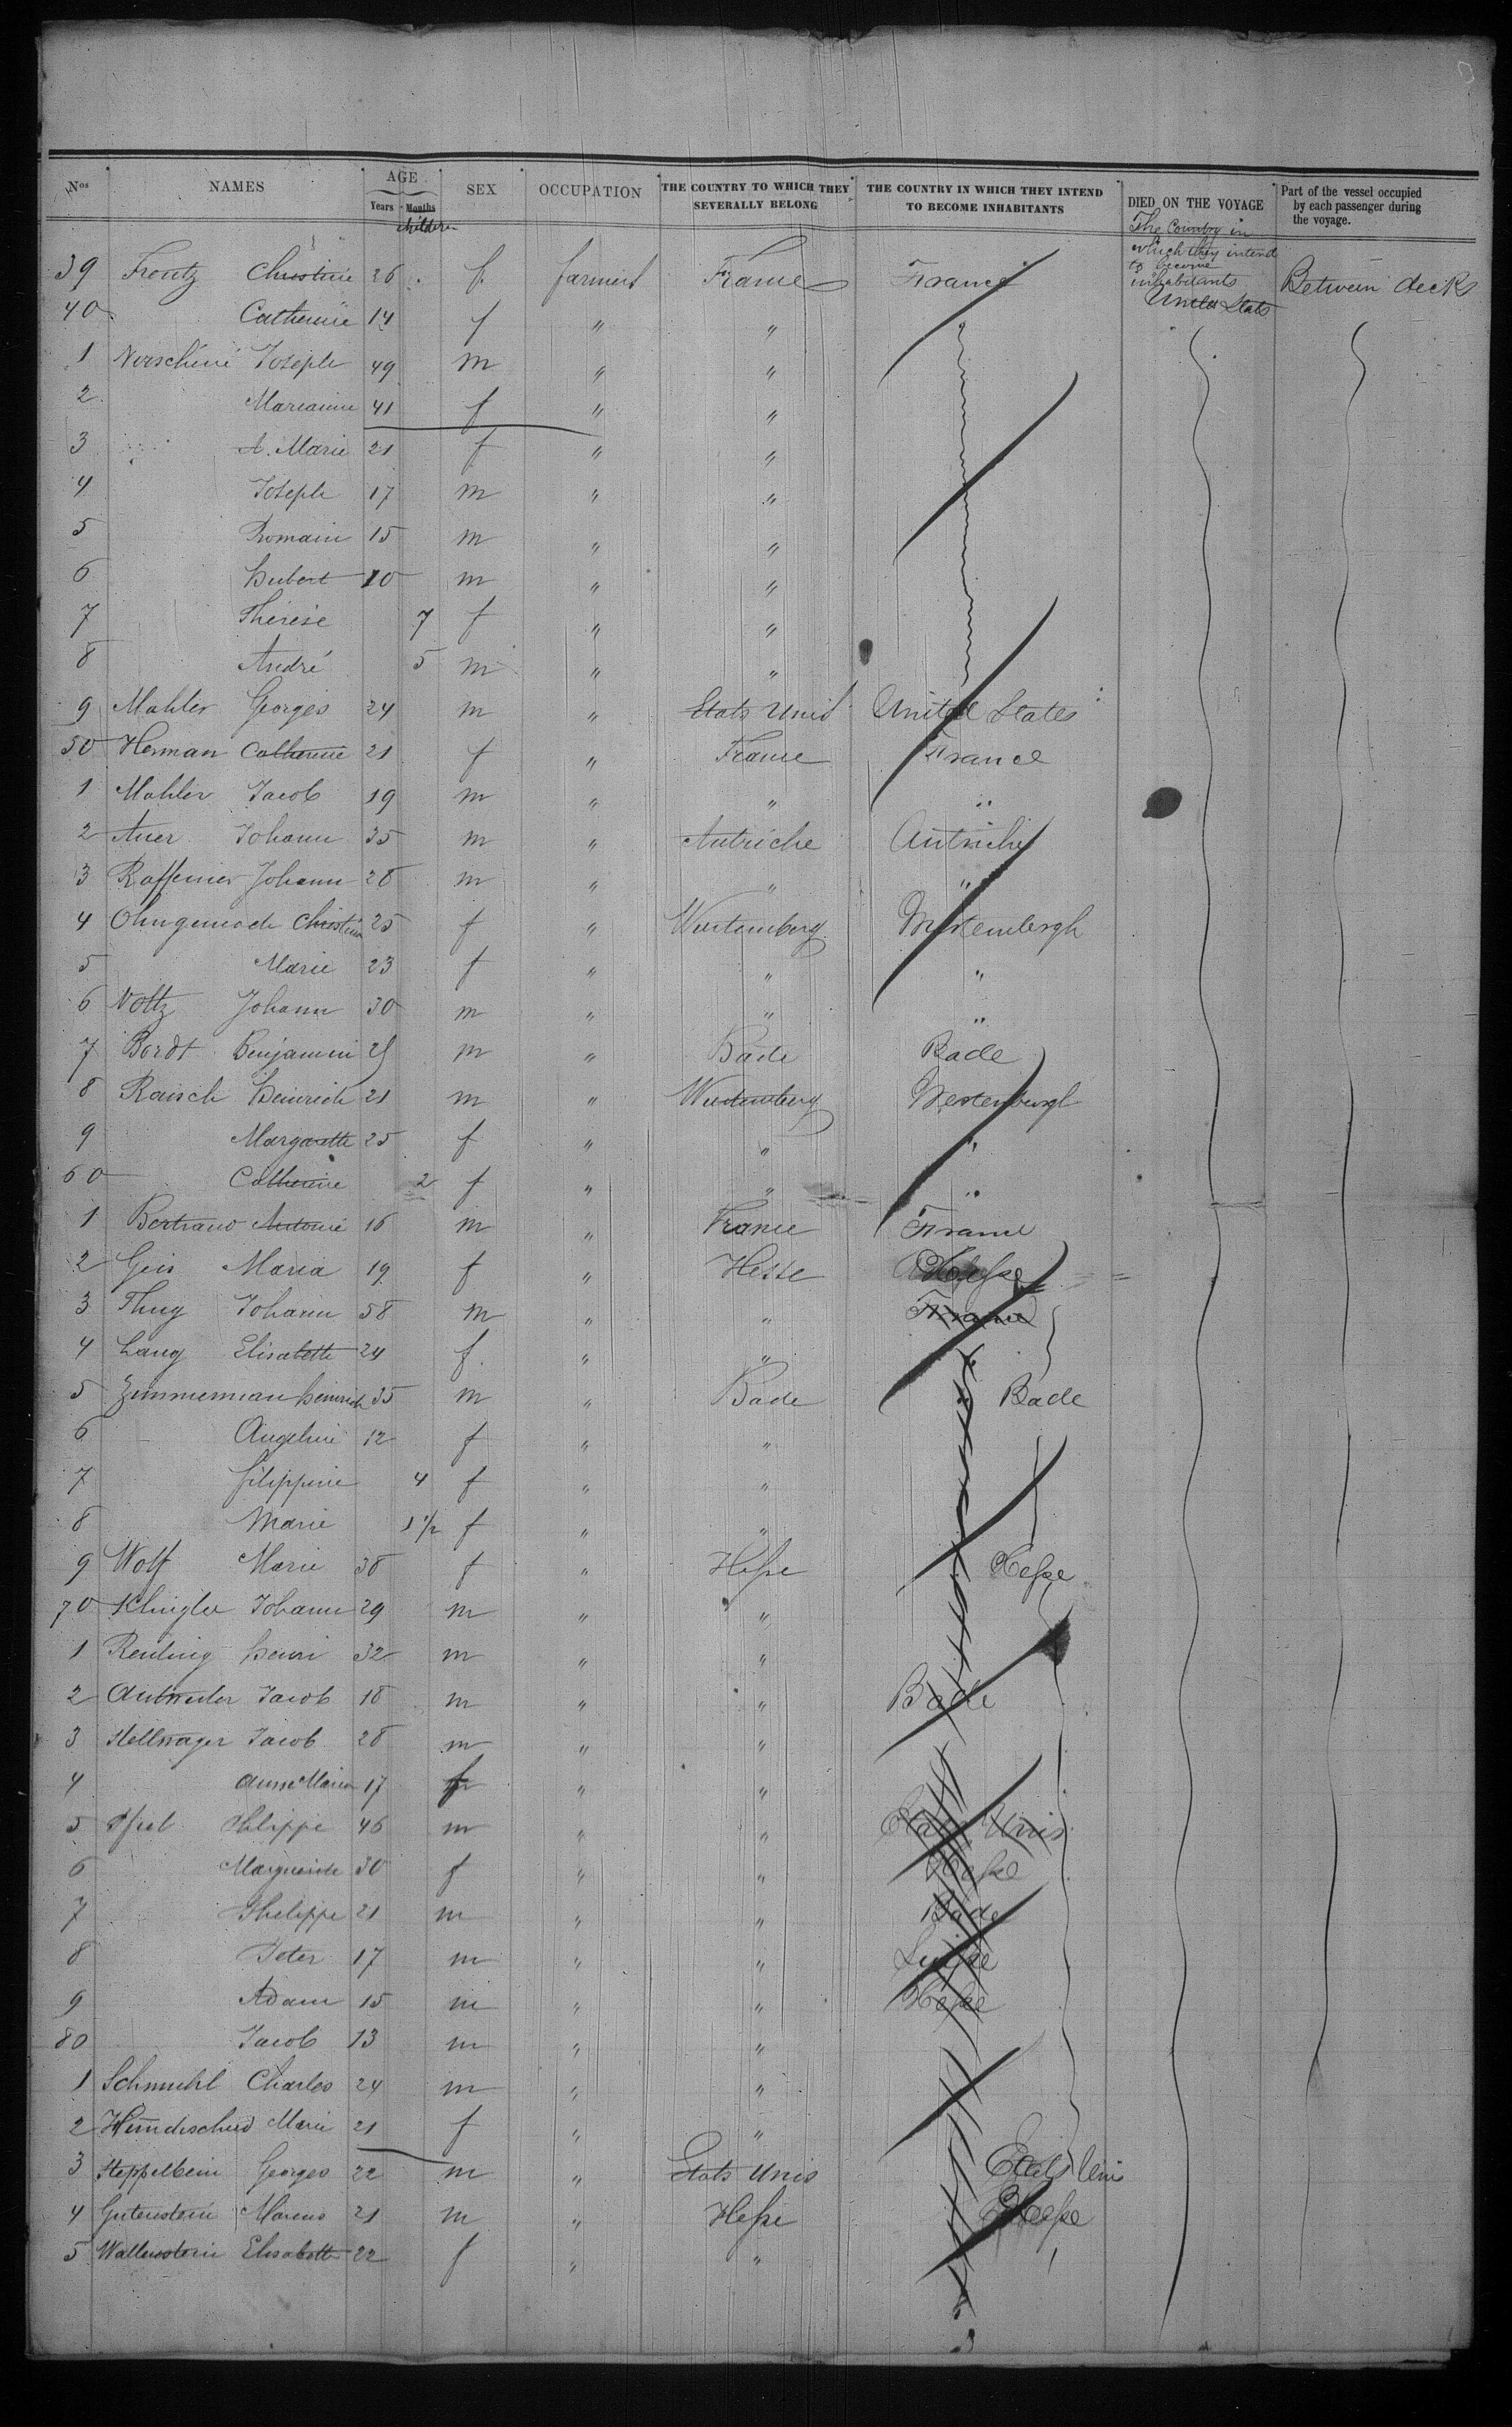 Nos NAMES AGE SEX OCCUPATION THE COUNTRY TO WHICH THEY SEVERALLY BELONG THE COUNTRY IN WHICH THEY INTEND TO BECOME INHABITANTS DIED ON THE VOYAGE Part of the vessel occupied by each passenger during the voyage.
Years Months
children
The Country in which they intend to become inhabitants
39 Frontz Christine 26 f. farmers France France United States Between decks
40 Catherine 14 f " "
1 Joseph 49 m " "
2 Marianne 41 f " "
3 A. Marie 21 f " "
4 Joseph 17 m " "
5 Romain 15 m " "
6 Hubert 10 m " "
7 Thérèse 7 f " "
8 André 5 m " "
9 Mahler Georges 24 m " Etats Unis United States
50 Herman Catherine 21 f " France France
1 Mahler Jacob 19 m " " "
2 Auer Johann 35 m " Autriche Autriche
3 Raffeiner Johann 28 m " " "
4 Christine 25 f " Wurtemberg Wurtembergh
5 Marie 23 f " " "
6 Voltz Johann 30 m " " "
7 Bordt Benjamin 25 m " Bade Bade
8 Raisch Heinrich 21 m " Wurtemberg
9 Margarette 25 f " " "
60 Catherine 2 f " " "
1 Bertrand Antoine 16 m " France France
2 Geis Maria 19 f " Hesse Hesse
3 Thuy Johann 58 m " " France
4 Lang Elisabette 24 f. " "
5 Zimmerman Heinrich 35 m " Bade Bade
6 Angeline 12 f " "
7 filippine 4 f " "
8 Marie 1 1/2 f " "
9 Wolf Marie 38 f " Hesse Hesse
70 Klingler Johann 29 m " "
1 Renling Henri 32 m " "
2 Jacob 18 m " " Bade
3 Hellwager Jacob 28 m " "
4 Anne Maria 17 f " "
5 Philippe 46 m " " Etats Unis
6 Marguerite 30 f " " Hesse
7 Philippe 21 m " " Bade
8 Peter 17 m " "
9 Adam 15 m " " Hesse
80 Jacob 13 m " "
1 Schmuhl Charles 24 m " "
2 Hundscheid Marie 21 f " "
3 Heppelbein Georges 22 m " Etats Unis Etats Unis
4 Gutenstein Marcus 21 m " Hesse Hesse
5 Wallenstein Elisabette 22 f " "